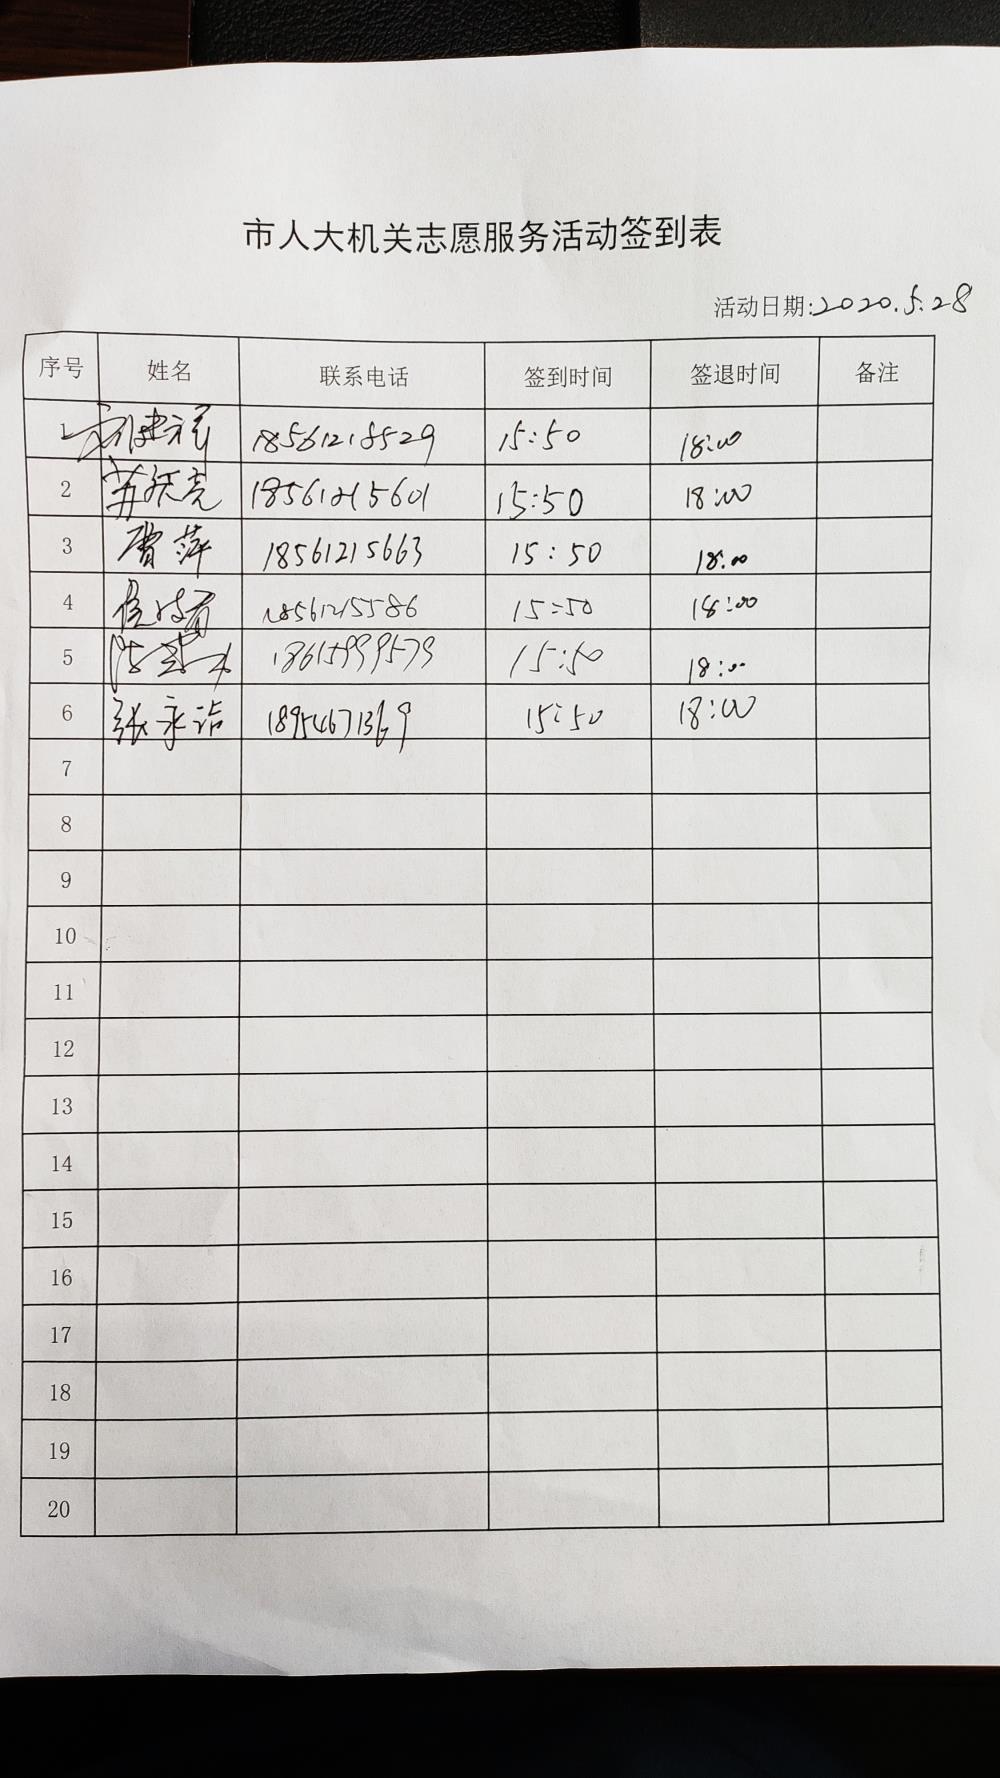 市人大机关志愿服务活动签到表
活动日期:2020.5.28
序号 姓名 联系电话 签到时间 签退时间 备注
1 18561218529 15:50 18:00
2 苏跃亮 18561215601 15:50 18:00
3 曹萍 18561215663 15:50 18:00
4 18561215586 15:50 18:00
5 18615999579 15:50 18:00
6 张永洁 18954671369 15:50 18:00
7
8
9
10
11
12
13
14
15
16
17
18
19
20